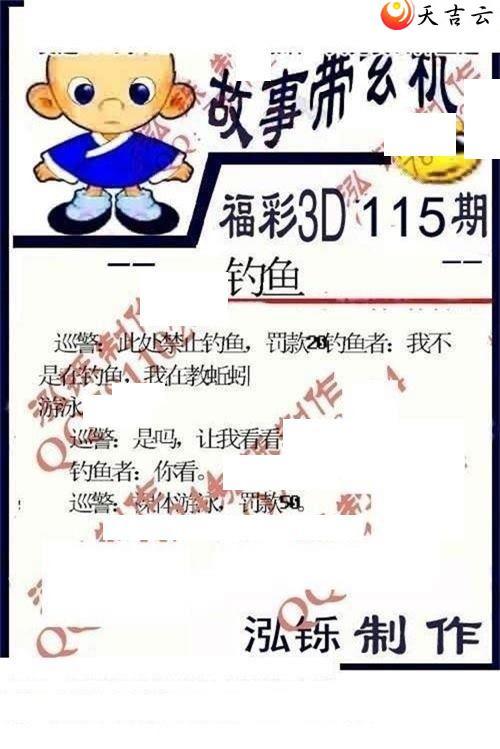 天吉云
故事带玄机
福彩3D 115期
钓鱼
巡警：此处禁止钓鱼，罚款20钓鱼者：我不
是在钓鱼，我在教蚯蚓
游泳
巡警：是吗，让我看看
钓鱼者：你看。
巡警：裸体游泳，罚款50。
泓铄制作